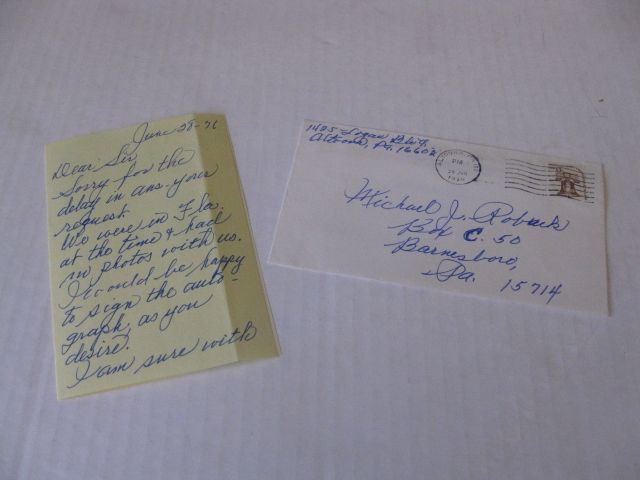 June 28-76
Dear Sir,
Sorry for the
delay in ans. your
request.
We were in Fla.
at the time & had
no photos with us.
I would be happy
to sign the auto-
graph, as you
desire.
I am sure with
1425 Logan Blvd.
Altoona, Pa. 16602
PM
28 JUN
1976
Michael J. Roback
Box C. 50
Barnesboro,
Pa.
15714